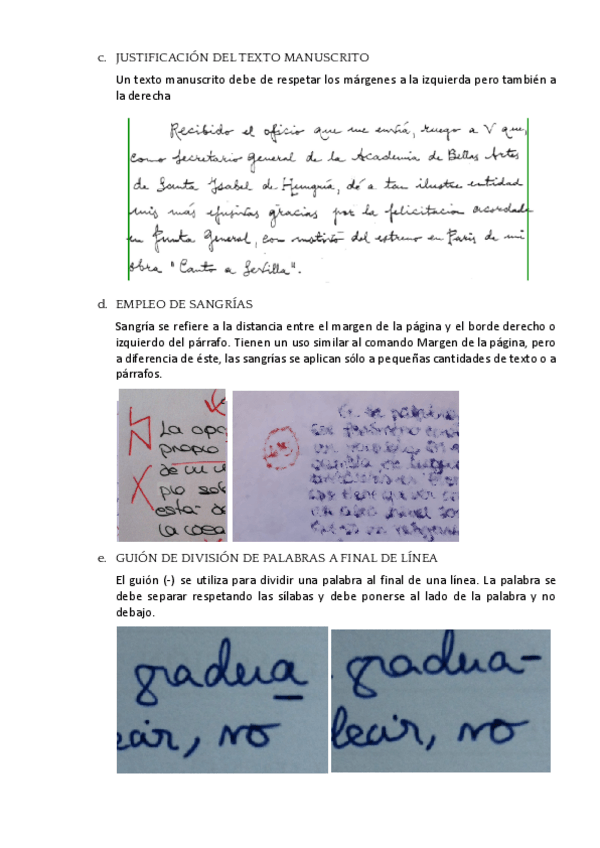 c. JUSTIFICACIÓN DEL TEXTO MANUSCRITO
Un texto manuscrito debe de respetar los márgenes a la izquierda pero también a
la derecha
Recibido el oficio que me envía, ruego a V que,
como Secretario General de la Academia de Bellas Artes
de Santa Ysabel de Hungría, dé a tan ilustre entidad
mis más efusivas gracias por la felicitación acordada
en Junta General, con motivo del estreno en París de mi
obra "Canto a Sevilla".
d. EMPLEO DE SANGRÍAS
Sangría se refiere a la distancia entre el margen de la página y el borde derecho o
izquierdo del párrafo. Tienen un uso similar al comando Margen de la página, pero
a diferencia de éste, las sangrías se aplican sólo a pequeñas cantidades de texto o a
párrafos.
La opo
propio
de un
pio sob
está de
la cosa
e. GUIÓN DE DIVISIÓN DE PALABRAS A FINAL DE LÍNEA
El guión (-) se utiliza para dividir una palabra al final de una línea. La palabra se
debe separar respetando las sílabas y debe ponerse al lado de la palabra y no
debajo.
gradua
ear, no
gradua-
lear, no